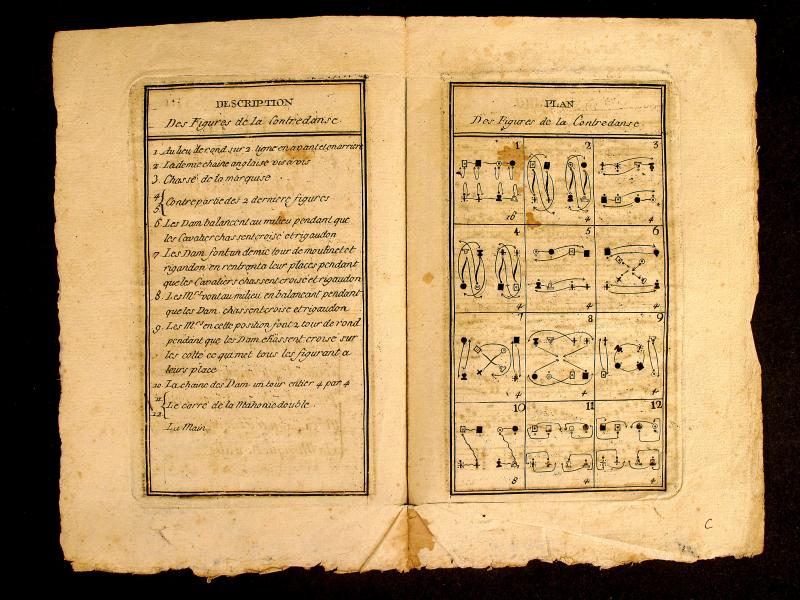 DESCRIPTION
Des Figures de la Contredanse.
1 Au lieu de rond sur 2 ligne en avant et en arriere
2 La demie chaine anglaise vis à vis
3 Chassé de la marquise.
4
5
Contrepartie des 2 derniere figures
6 Les Dam balancent au milieu pendant que
les Cavalier chassent croisé et rigaudon
7 Les Dam font un demie tour de moulinet et
rigaudon en rentrant a leur places pendant
que les Cavaliers chassent croisé et rigaudon
8 Les M.rs vont au milieu en balancant pendant
que les Dam. chassent croise et rigaudon
9 Les M.rs en cette position font 2 tour de rond
pendant que les Dam. chassent croisé sur
les cotté ce qui met tous les figurant a
leurs place
10 La chaine des Dam un tour entier 4 par 4
11
12
Le carré de la Mahonie double.
La Main.
PLAN
Des Figures de la Contredanse.
2 3
16 4 4
4 5 6
4 4 4
7 8 9
4 4 4
10 11 12
8 4 4
C